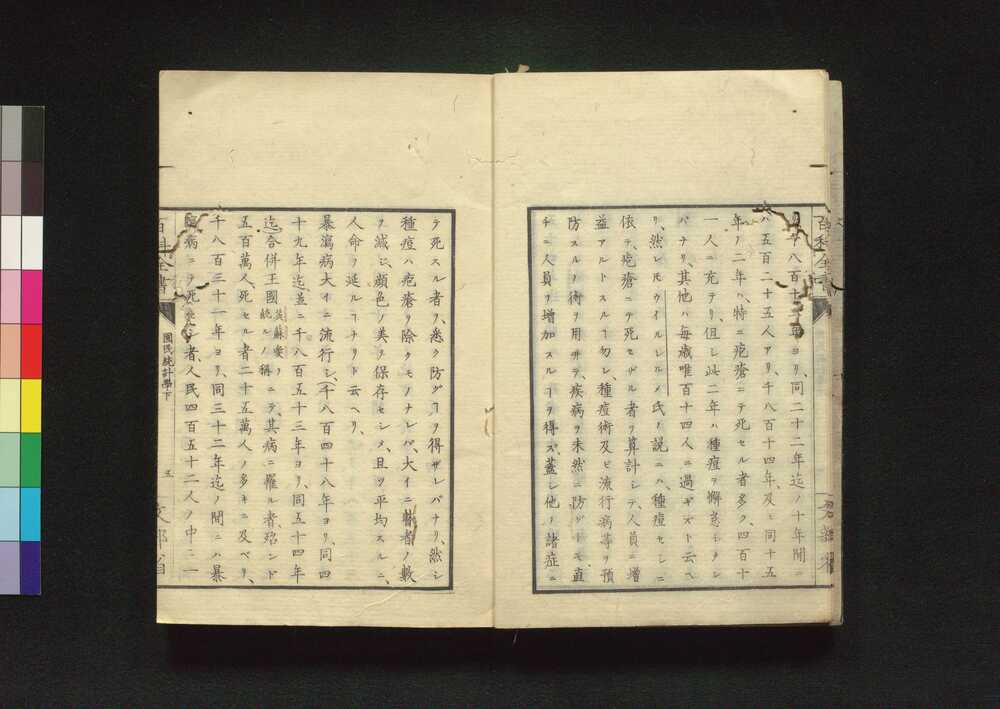 千八百十三年ヨリ、同二十二年迄ノ十年間ニ
ハ五百二十五人アリ、千八百十四年、及ヒ同十五
年ノ二年ハ、特ニ疱瘡ニテ死セル者多ク、四百十
一人ニ充テリ、但シ此二年ハ種痘ヲ懈怠シタレ
バナリ、其他ハ毎歳唯百十四人ニ過ギズト云ヘ
リ、然レ𪜈ウイルレルメ氏ノ説ニハ、種痘セシニ
依テ、疱瘡ニテ死セザル者ヲ算計シテ、人員ニ増
益アルトスルヿ勿レ、種痘術及ヒ流行病等ヲ預
防スルノ術ヲ用井テ、疾病ヲ未然ニ防グトモ、直
チニ人員ヲ増加スルヿヲ得ズ、蓋シ他ノ諸症ニ
テ死スル者ヲ、悉ク防グヿヲ得ザレバナリ、然シ
種痘ハ疱瘡ヲ除クモノナレバ、大イニ瞽者ノ數
ヲ減ジ、顔色ノ美ヲ保存セシメ、且ツ平均スルニ、
人命ヲ延ルヿナリト云ヘリ、
暴瀉病大イニ流行シ、千八百四十八年ヨリ、同四
十九年迄、並ニ千八百五十三年ヨリ、同五十四年
迄合併王國英蘇愛ヲ統ルノ稱ニテ、其病ニ罹ル者、殆ンド
五百萬人、死セル者二十五萬人ノ多キニ及ベリ、
千八百三十一年ヨリ、同三十二年迄ノ間ニハ、暴
瀉病ニテ死セシ者、人民四百五十二人ノ中ニ一
百科全書
國民統計學下
五
文部省